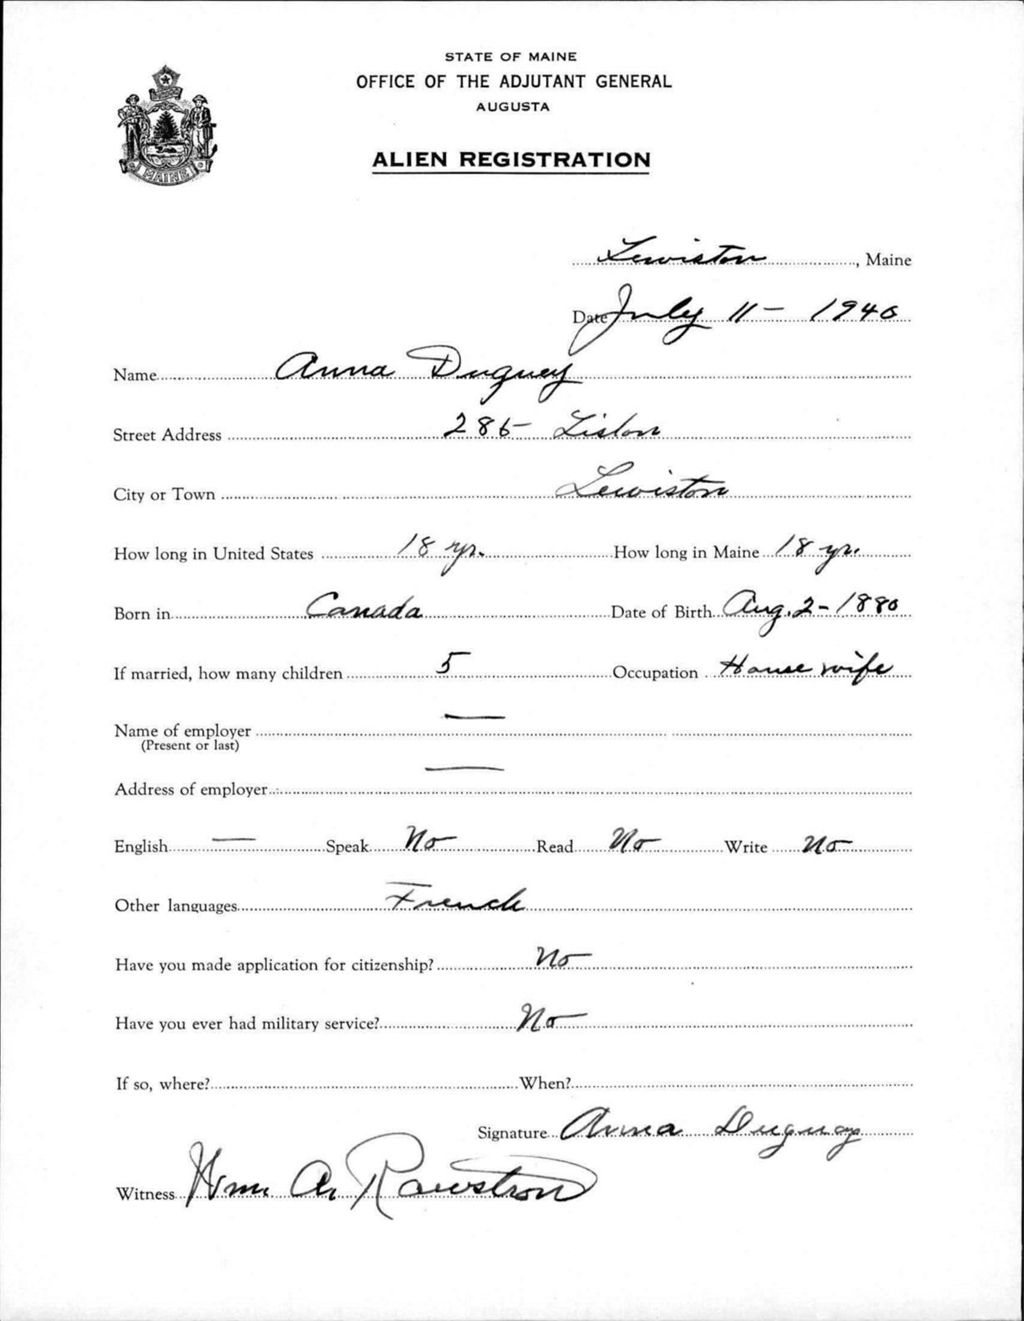 STATE OF MAINE
OFFICE OF THE ADJUTANT GENERAL
AUGUSTA
ALIEN REGISTRATION
MAINE
Lewiston, Maine
Date July 11 - 1940
Name Anna Duguey
Street Address 286 - Lisbon
City or Town Lewiston
How long in United States 18 yr. How long in Maine 18 yr.
Born in Canada Date of Birth Aug. 2 - 1880
If married, how many children 5 Occupation House wife
Name of employer —
(Present or last)
Address of employer —
English — Speak No Read No Write No
Other languages French
Have you made application for citizenship? No
Have you ever had military service? No
If so, where? When?
Signature Anna Duguay
Witness Wm. A. Rawstron